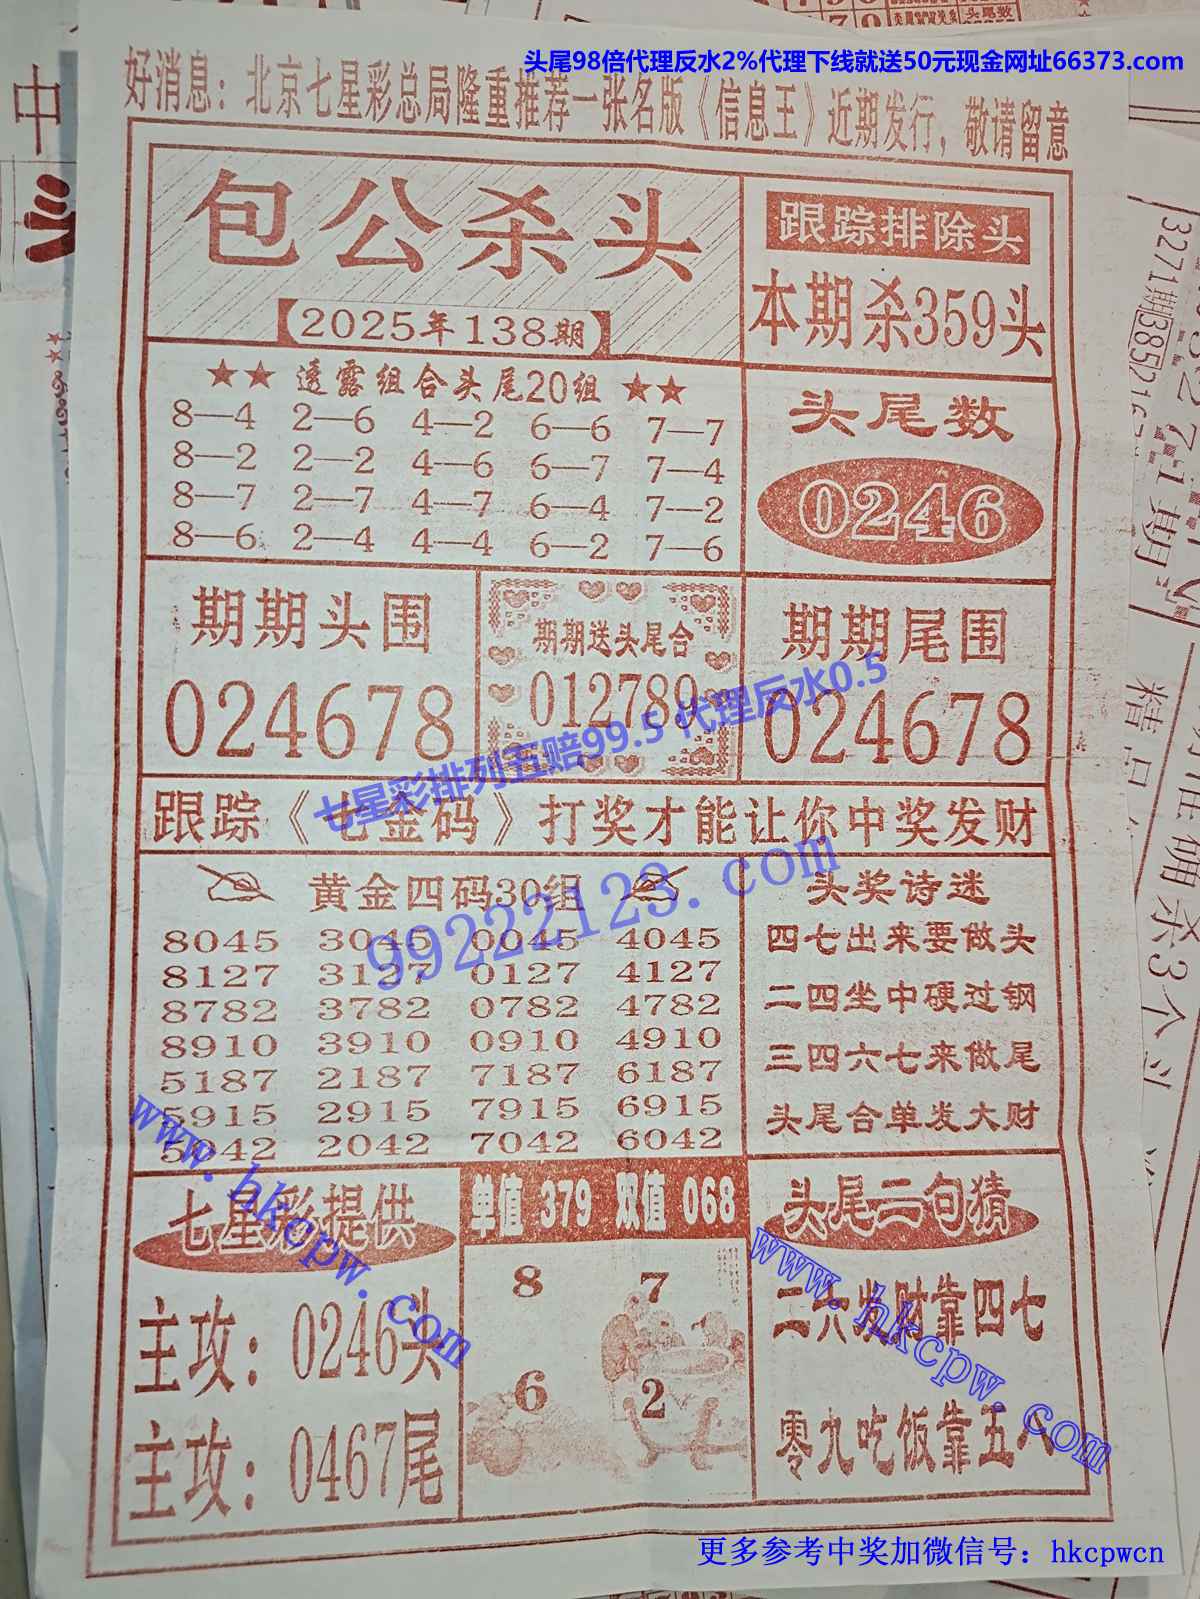 头尾98倍代理反水2%代理下线就送50元现金网址66373.com
好消息：北京七星彩总局隆重推荐一张名版《信息王》近期发行，敬请留意
包公杀头
【2025年138期】
跟踪排除头
本期杀359头
★★ 透露组合头尾20组 ★★
8—4 2—6 4—2 6—6 7—7
8—2 2—2 4—6 6—7 7—4
8—7 2—7 4—7 6—4 7—2
8—6 2—4 4—4 6—2 7—6
头尾数
0246
期期头围
024678
期期送头尾合
012789
期期尾围
024678
七星彩排列五赔99.5 代理反水0.5
跟踪《七金码》打奖才能让你中奖发财
99222123.com
黄金四码30组
8045 3045 0045 4045
8127 3127 0127 4127
8782 3782 0782 4782
8910 3910 0910 4910
5187 2187 7187 6187
5915 2915 7915 6915
5042 2042 7042 6042
头奖诗迷
四七出来要做头
二四坐中硬过钢
三四六七来做尾
头尾合单发大财
www.hkcpw.com
七星彩提供
主攻：0246头
主攻：0467尾
单值 379 双值 068
8 7
6 2
头尾二句猜
二六发财靠四七
零九吃饭靠五八
www.hkcpw.com
更多参考中奖加微信号：hkcpwcn
中
3271期
385216
271期
精品
确杀3个